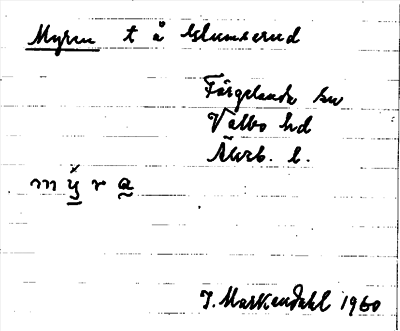 Myren t å Klumserud
Färgelanda sn
Valbo hd
Älvsb. l.
m ý r a
J. Markendahl 1960